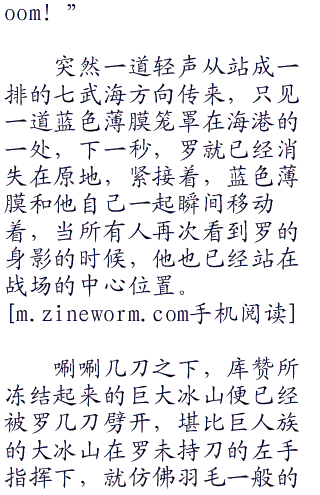 oom!”
突然一道轻声从站成一
排的七武海方向传来，只见
一道蓝色薄膜笼罩在海港的
一处，下一秒，罗就已经消
失在原地，紧接着，蓝色薄
膜和他自己一起瞬间移动
着，当所有人再次看到罗的
身影的时候，他也已经站在
战场的中心位置。
[m.zineworm.com手机阅读]
唰唰几刀之下，库赞所
冻结起来的巨大冰山便已经
被罗几刀劈开，堪比巨人族
的大冰山在罗未持刀的左手
指挥下，就仿佛羽毛一般的